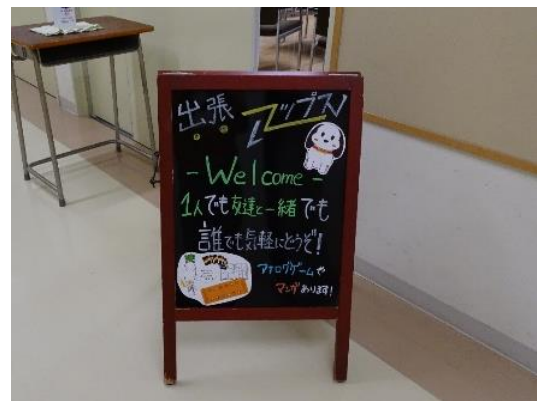 出張 Zップス
- Welcome -
1人でも友達と一緒でも
誰でも気軽にどうぞ!
アナログゲームや
マンガあります!